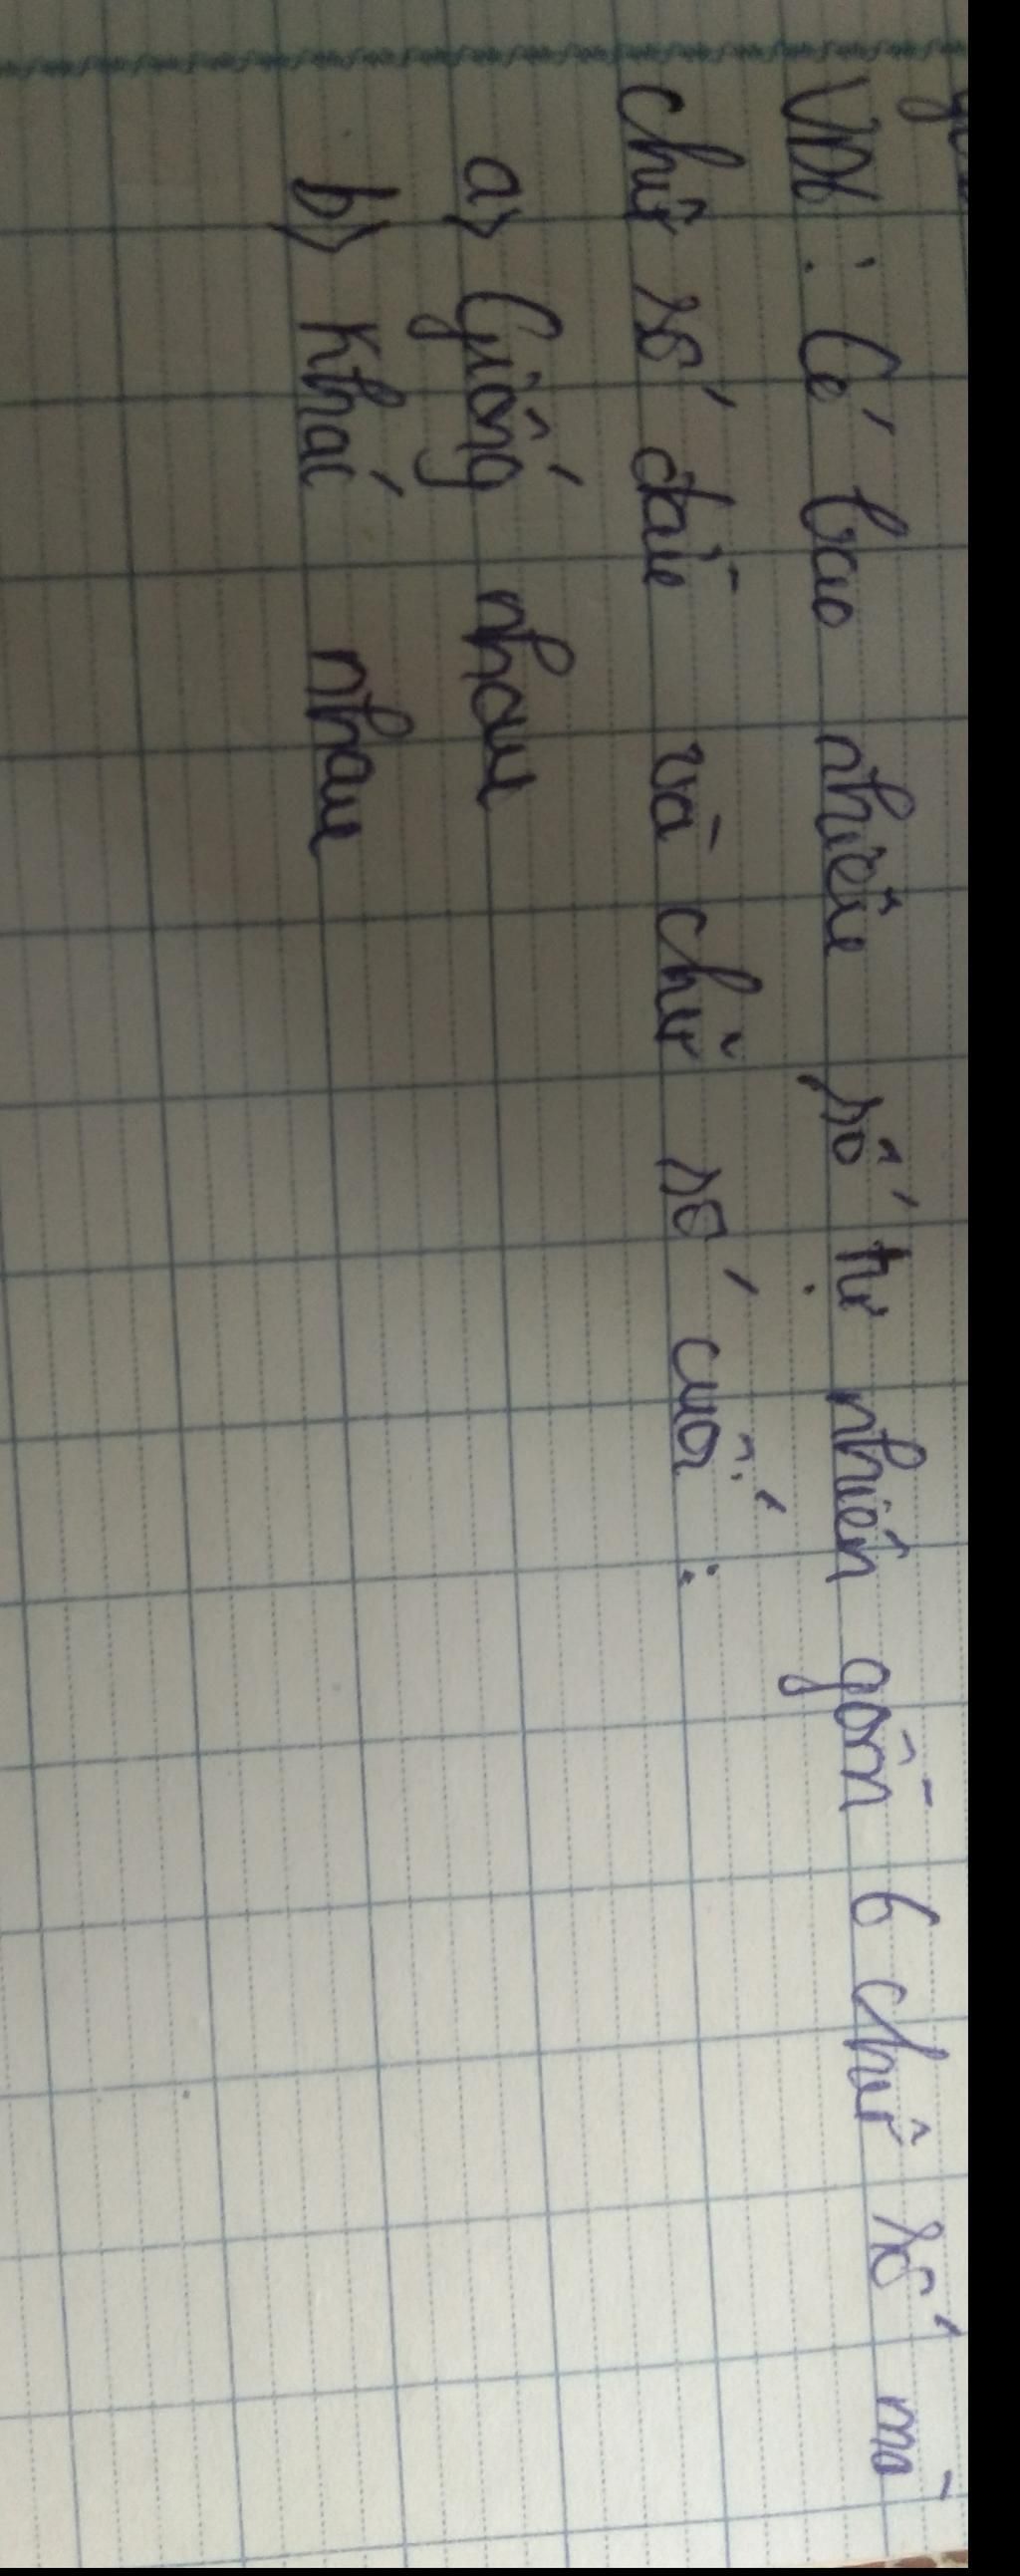 VD: Có bao nhiêu số tự nhiên gồm 6 chữ số mà
chữ số đầu và chữ số cuối :
a> Giống nhau
b> Khác nhau